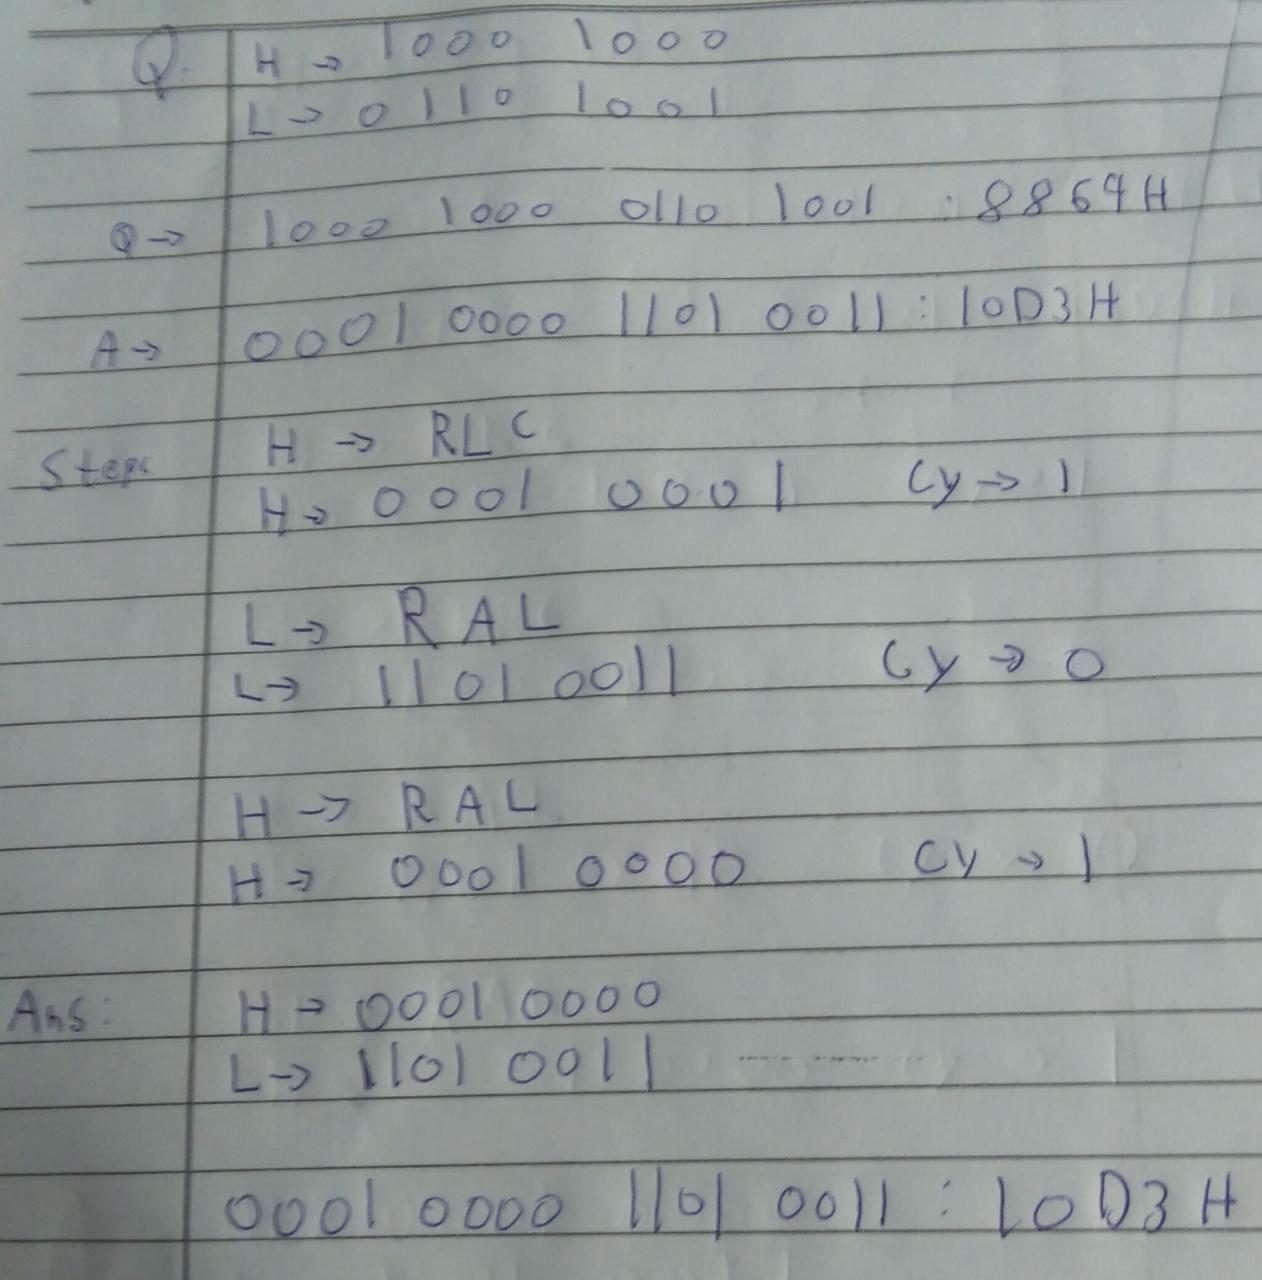 Q. H → 1000 1000
L → 0110 1001
Q → 1000 1000 0110 1001 : 8869H
A → 0001 0000 1101 0011 : 10D3H
Steps H → RLC
H → 0001 0001 Cy → 1
L → RAL
L → 1101 0011 Cy → 0
H → RAL
H → 0001 0000 Cy → 1
Ans: H → 0001 0000
L → 1101 0011
0001 0000 1101 0011 : 10D3H